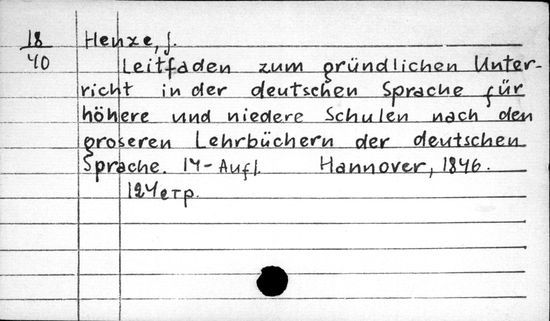 18
40
Henze, J.
Leitfaden zum gründlichen Unter-
richt in der deutschen Sprache für
höhere und niedere Schulen nach den
groseren Lehrbüchern der deutschen
Sprache. 14-Aufl. Hannover, 1846.
124 стр.